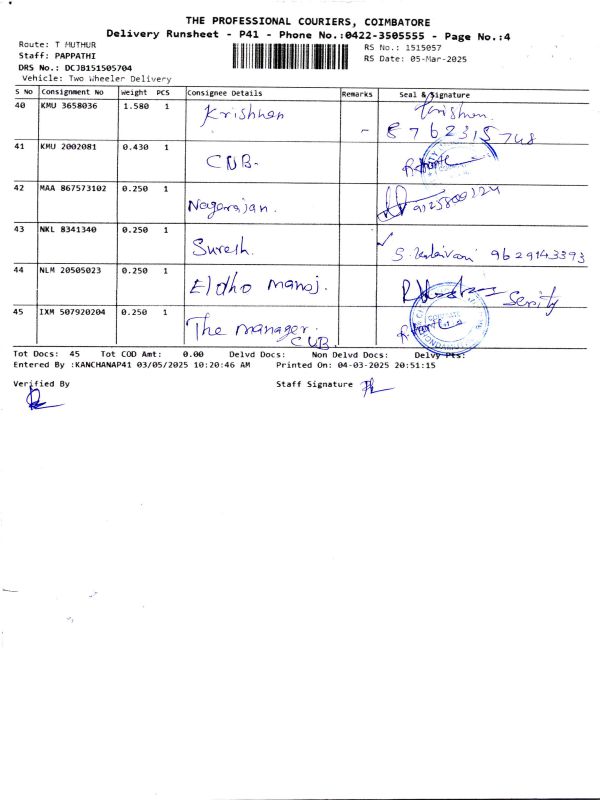 THE PROFESSIONAL COURIERS, COIMBATORE
Delivery Runsheet - P41 - Phone No.:0422-3505555 - Page No.:4
Route: T MUTHUR
Staff: PAPPATHI
DRS No.: DCJB151505704
Vehicle: Two Wheeler Delivery
RS No.: 1515057
RS Date: 05-Mar-2025
S No Consignment No Weight PCS Consignee Details Remarks Seal & Signature
40 KMU 3658036 1.580 1 Krishnan Krishnan
8762315748
41 KMU 2002081 0.430 1 CUB.
42 MAA 867573102 0.250 1 Nagarajan. 9125800224
43 NKL 8341340 0.250 1 Suresh. S. 9629143393
44 NLM 20505023 0.250 1 Eldho Manoj.
45 IXM 507920204 0.250 1 The manager.
CUB.
Tot Docs: 45 Tot COD Amt: 0.00 Delvd Docs: Non Delvd Docs: Delvy Pts:
Entered By :KANCHANAP41 03/05/2025 10:20:46 AM Printed On: 04-03-2025 20:51:15
Verified By Staff Signature